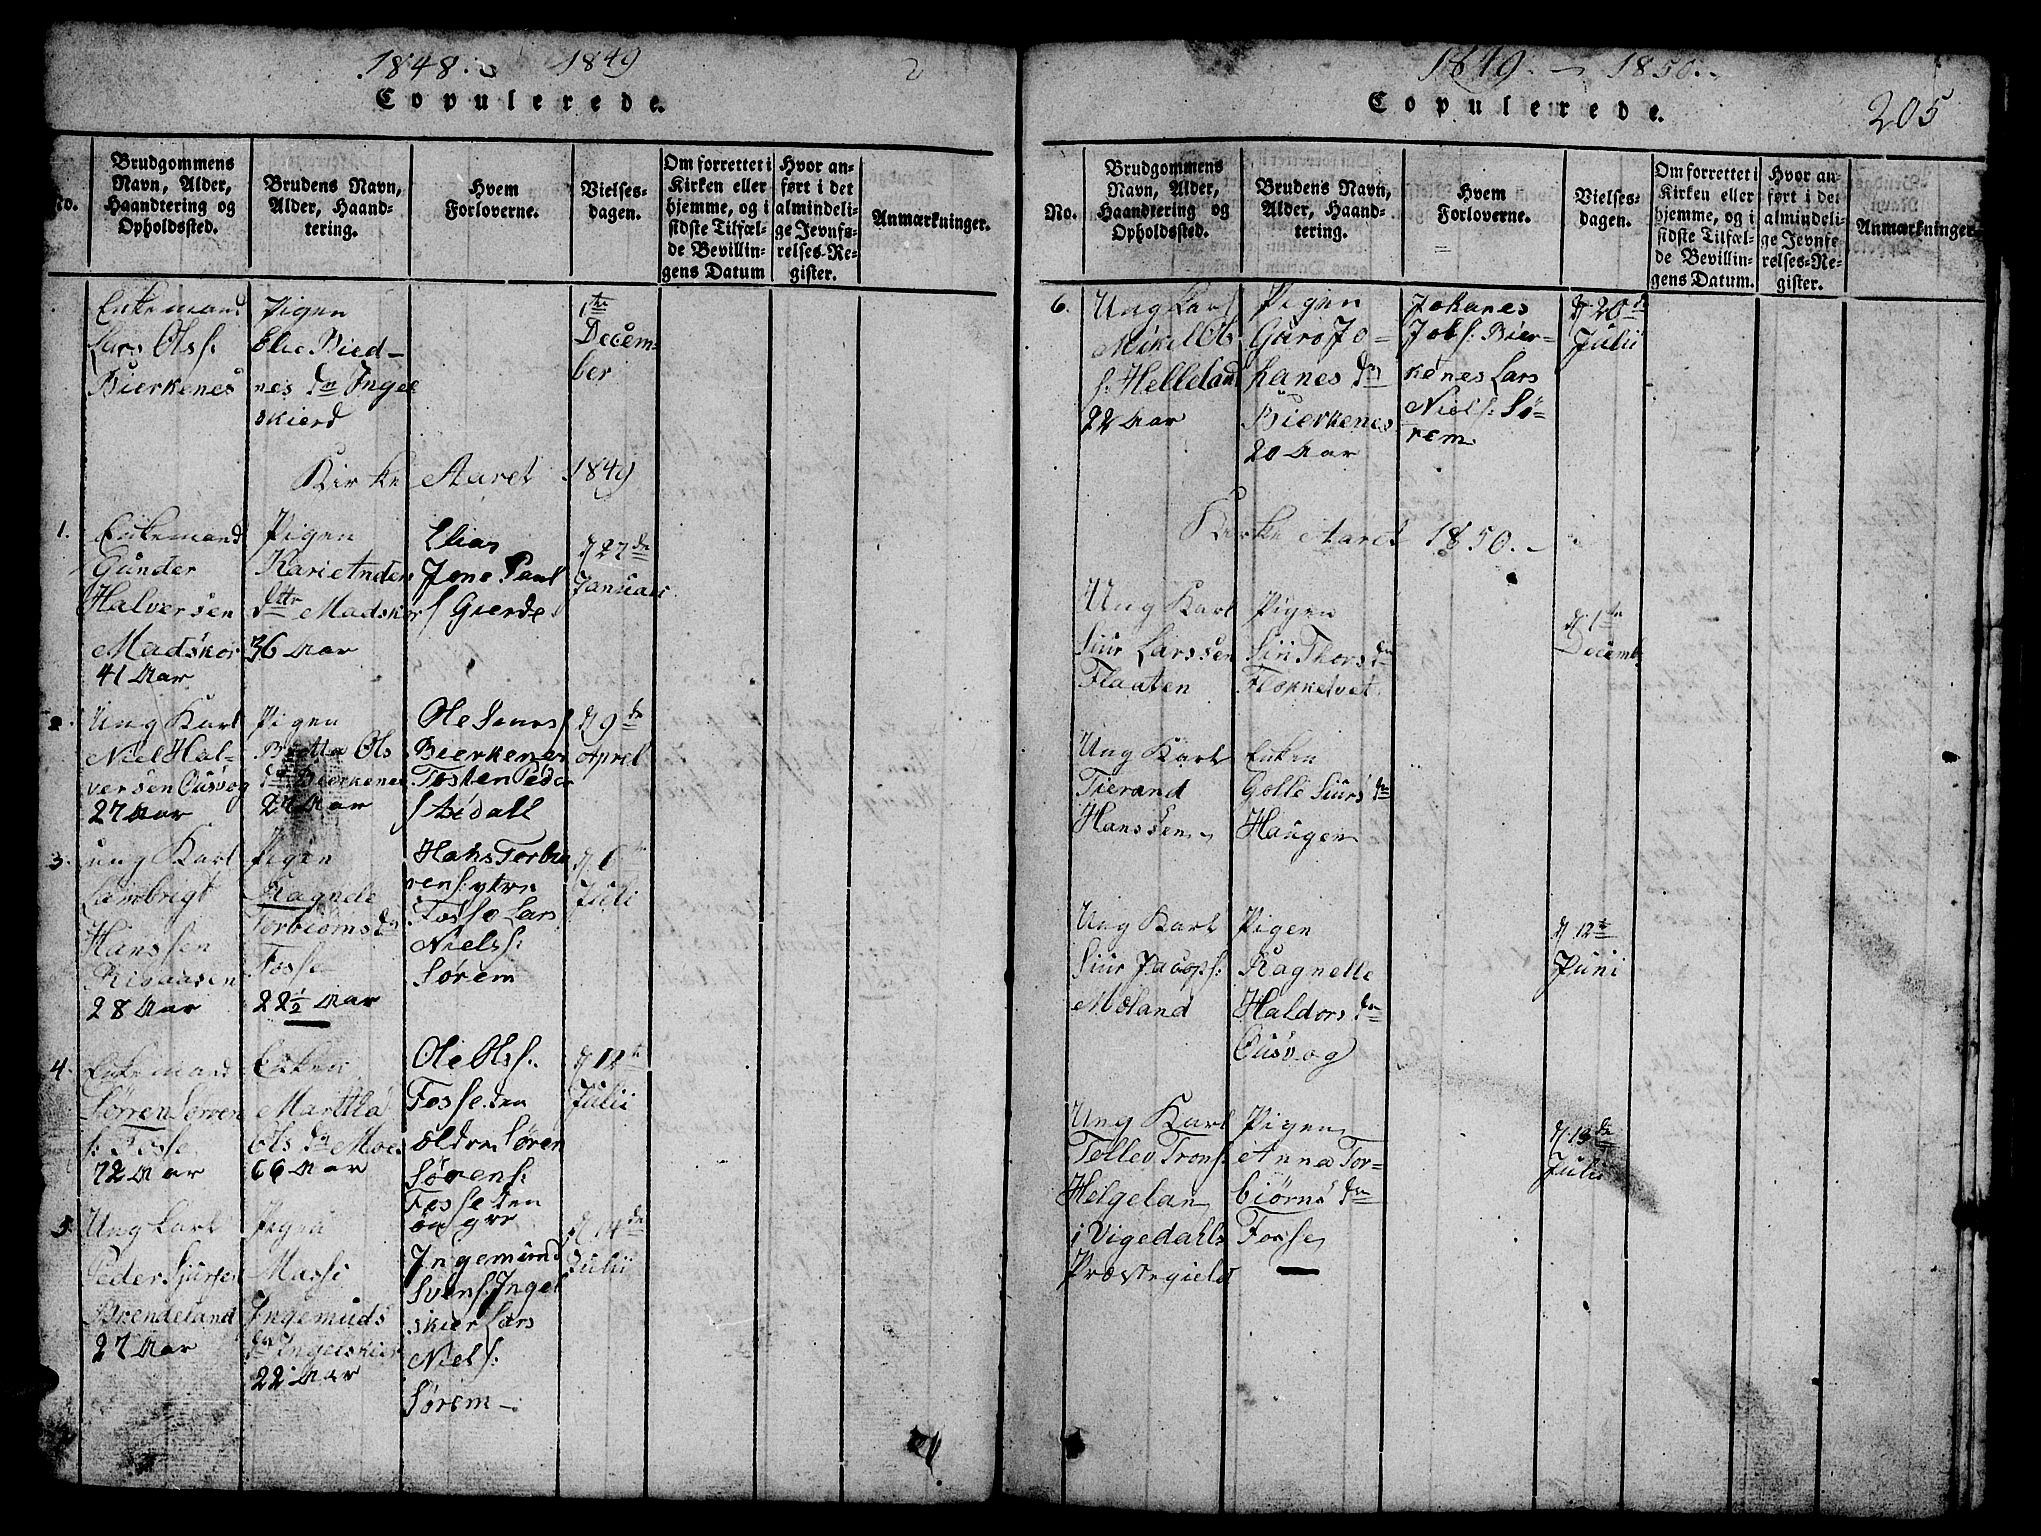 1848. 1849
Copulerede.
No.
Brudgommens
Navn, Alder,
Haandtering og
Opholdssted.
Brudens Navn,
Alder, Haand-
tering.
Hvem
Forloverne.
Vielses-
dagen.
Om forrettet i
Kirken eller
hjemme, og i
sidste Tilfæl-
de Bevillin-
gens Datum
Hvor an-
ført i det
almindeli-
ge Jevnfø-
relses-Re-
gister.
Anmærkninger.
Enkemand
Lars Olss:
Bierkenes
Pigen
Elie Nied-
nes Dn Ingel
skierd
1te
Decem-
ber
Kirke Aaret 1849
1.
Enkemand
Gunder
Halversen
Madskor
41 Aar
Pigen
Karie Anders
Dttr Madskor
36 Aar
Elias
Jone Paul
s Gierde
d 27de
Januari
2.
Ung Karl
Niel Hal-
versen Ousvog
27 Aar
Pigen
Brotta Ols
Dn Bierkenes
24 Aar
Ole Jonas s
Bierkenes
Tosten Peder
s Aødall
d 9de
Aprel
3.
ung Karl
Lambrigt
Hanssen
28 Aar
Pigen
Ragnele
Torbiørns Dn
Fosse
22½ Aar
Hans Torbiø
rens: ytre
Fosse Lars
Niels s:
Sørem
d 6te
Juli
4.
Enkemand
Sørren Sørren
s: Fosse
72 Aar
Enken
Marttha
Ols Dn Moe
66 Aar
Ole Olss:
Fosse den
ældre Søren
Sørens:
Fosse den
øngre
d 12te
Julii
5.
Ung Karl
Peder Sjursen
Brendeland
27 Aar
Pigen
Massi
Ingemuds
Dn Ingelskier
22 Aar
Ingemund
Svens: Ingel
skier Lars
Niels:
Sørem
d 14de
Julii
1849. - 1850.
205
Copulerede.
No.
Brudgommens
Navn, Alder,
Haandtering og
Opholdssted.
Brudens Navn,
Alder, Haand-
tering.
Hvem
Forloverne.
Vielses-
dagen.
Om forrettet i
Kirken eller
hjemme, og i
sidste Tilfæl-
de Bevillin-
gens Datum.
Hvor an-
ført i det
almindeli-
ge Jevnfø-
relses-Re-
gister.
Anmærkninger
6.
Ung Karl
Mikel Ols
s: Helleland
22 Aar
Pigen
Guro Jo-
hanes Dn
Bierkenes
20 Aar
Johanes
Johs: Bier-
kenes Lars
Niels: Sø-
rem
d 20de
Julii
Kirke Aaret 1850.
Ung Karl
Siur Larssen
Flaaten
Pigen
Siri Thors Dn
Flokketvet
d 1te
Decemb
Ung Karl
Tierand
Hanssen
Enken
Golle Siurs Dn
Haugen
Ung Karl
Siur Jacops:
Moland
Pigen
Ragnelle
Haldors Dn
Ousvog
d 12te
Juni
Ung Karl
Tellev Trons:
Helgelan
i Vigedahls
Præstegield
Pigen
Anna Tor-
biørns Dn
Fosse
d 13de
Juli